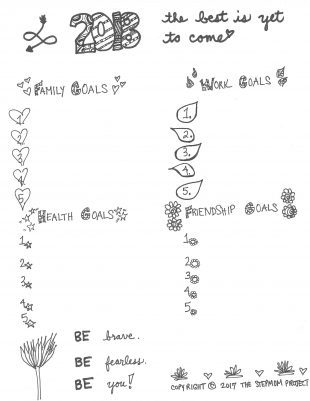 2018 the best is yet
to come
FAMILY GOALS
1.
2.
3.
4.
5.
WORK GOALS
1.
2.
3.
4.
5.
HEALTH GOALS
1
2
3
4
5
FRIENDSHIP GOALS
1.
2.
3.
4.
5.
BE brave.
BE fearless.
BE you!
COPYRIGHT © 2017 THE STEPMOM PROJECT